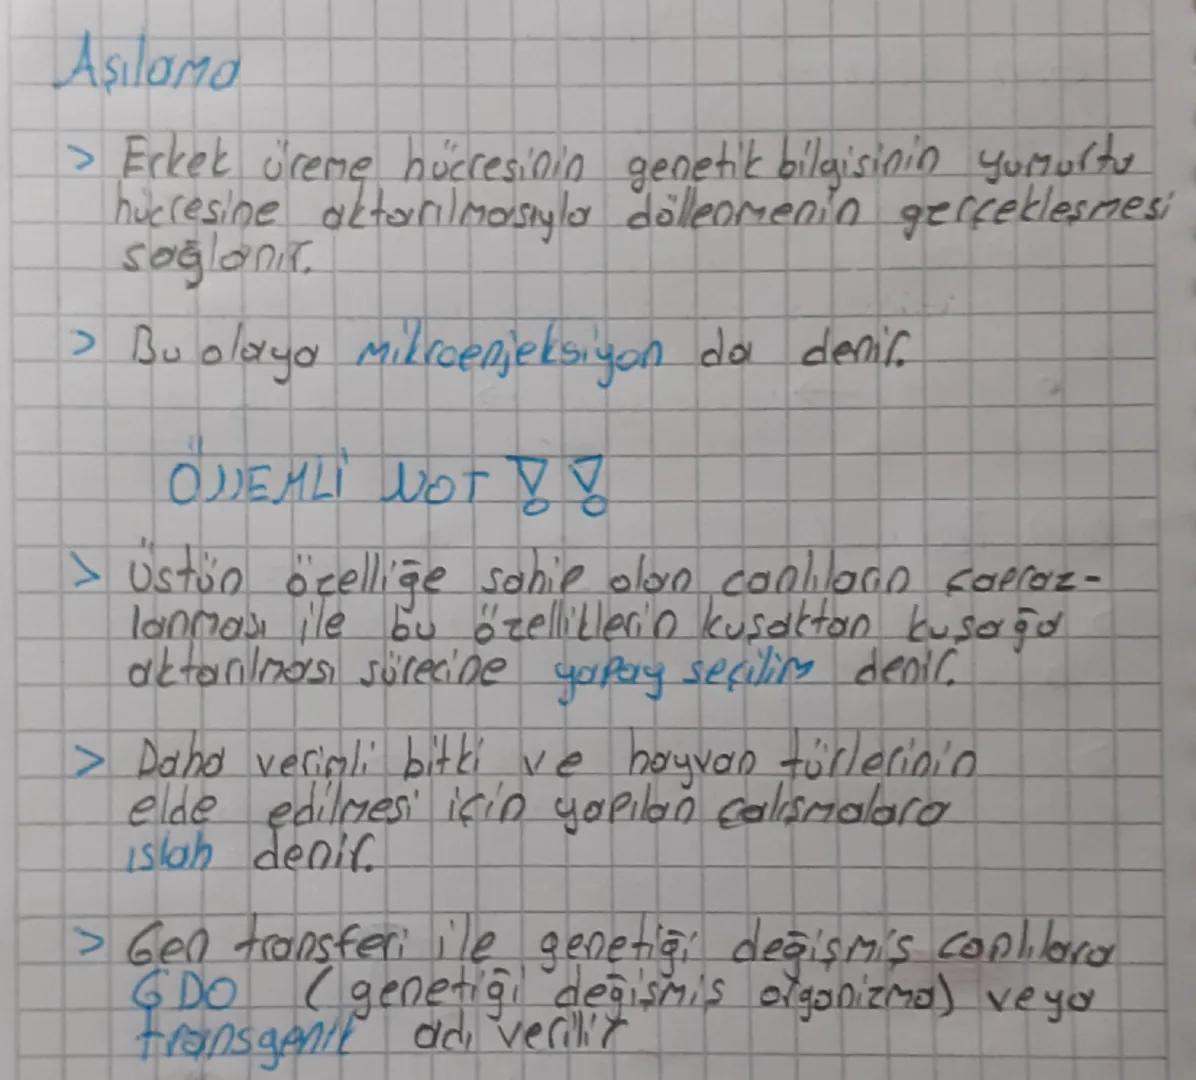 Aşılama
> Erkek üreme hücresinin genetik bilgisinin yumurta
hücresine aktarılmasıyla döllenmenin gerçekleşmesi
sağlanır.
> Bu olaya mikroenjeksiyon da denir.
ÖNEMLİ NOT !!
> Üstün özelliğe sahip olan canlıların çapraz-
lanması ile bu özelliklerin kuşaktan kuşağa
aktarılması sürecine yapay seçilim denir.
> Daha verimli bitki ve hayvan türlerinin
elde edilmesi için yapılan çalışmalara
ıslah denir.
> Gen transferi ile genetiği değişmiş canlılara
GDO (genetiği değişmiş organizma) veya
transgenik adı verilir